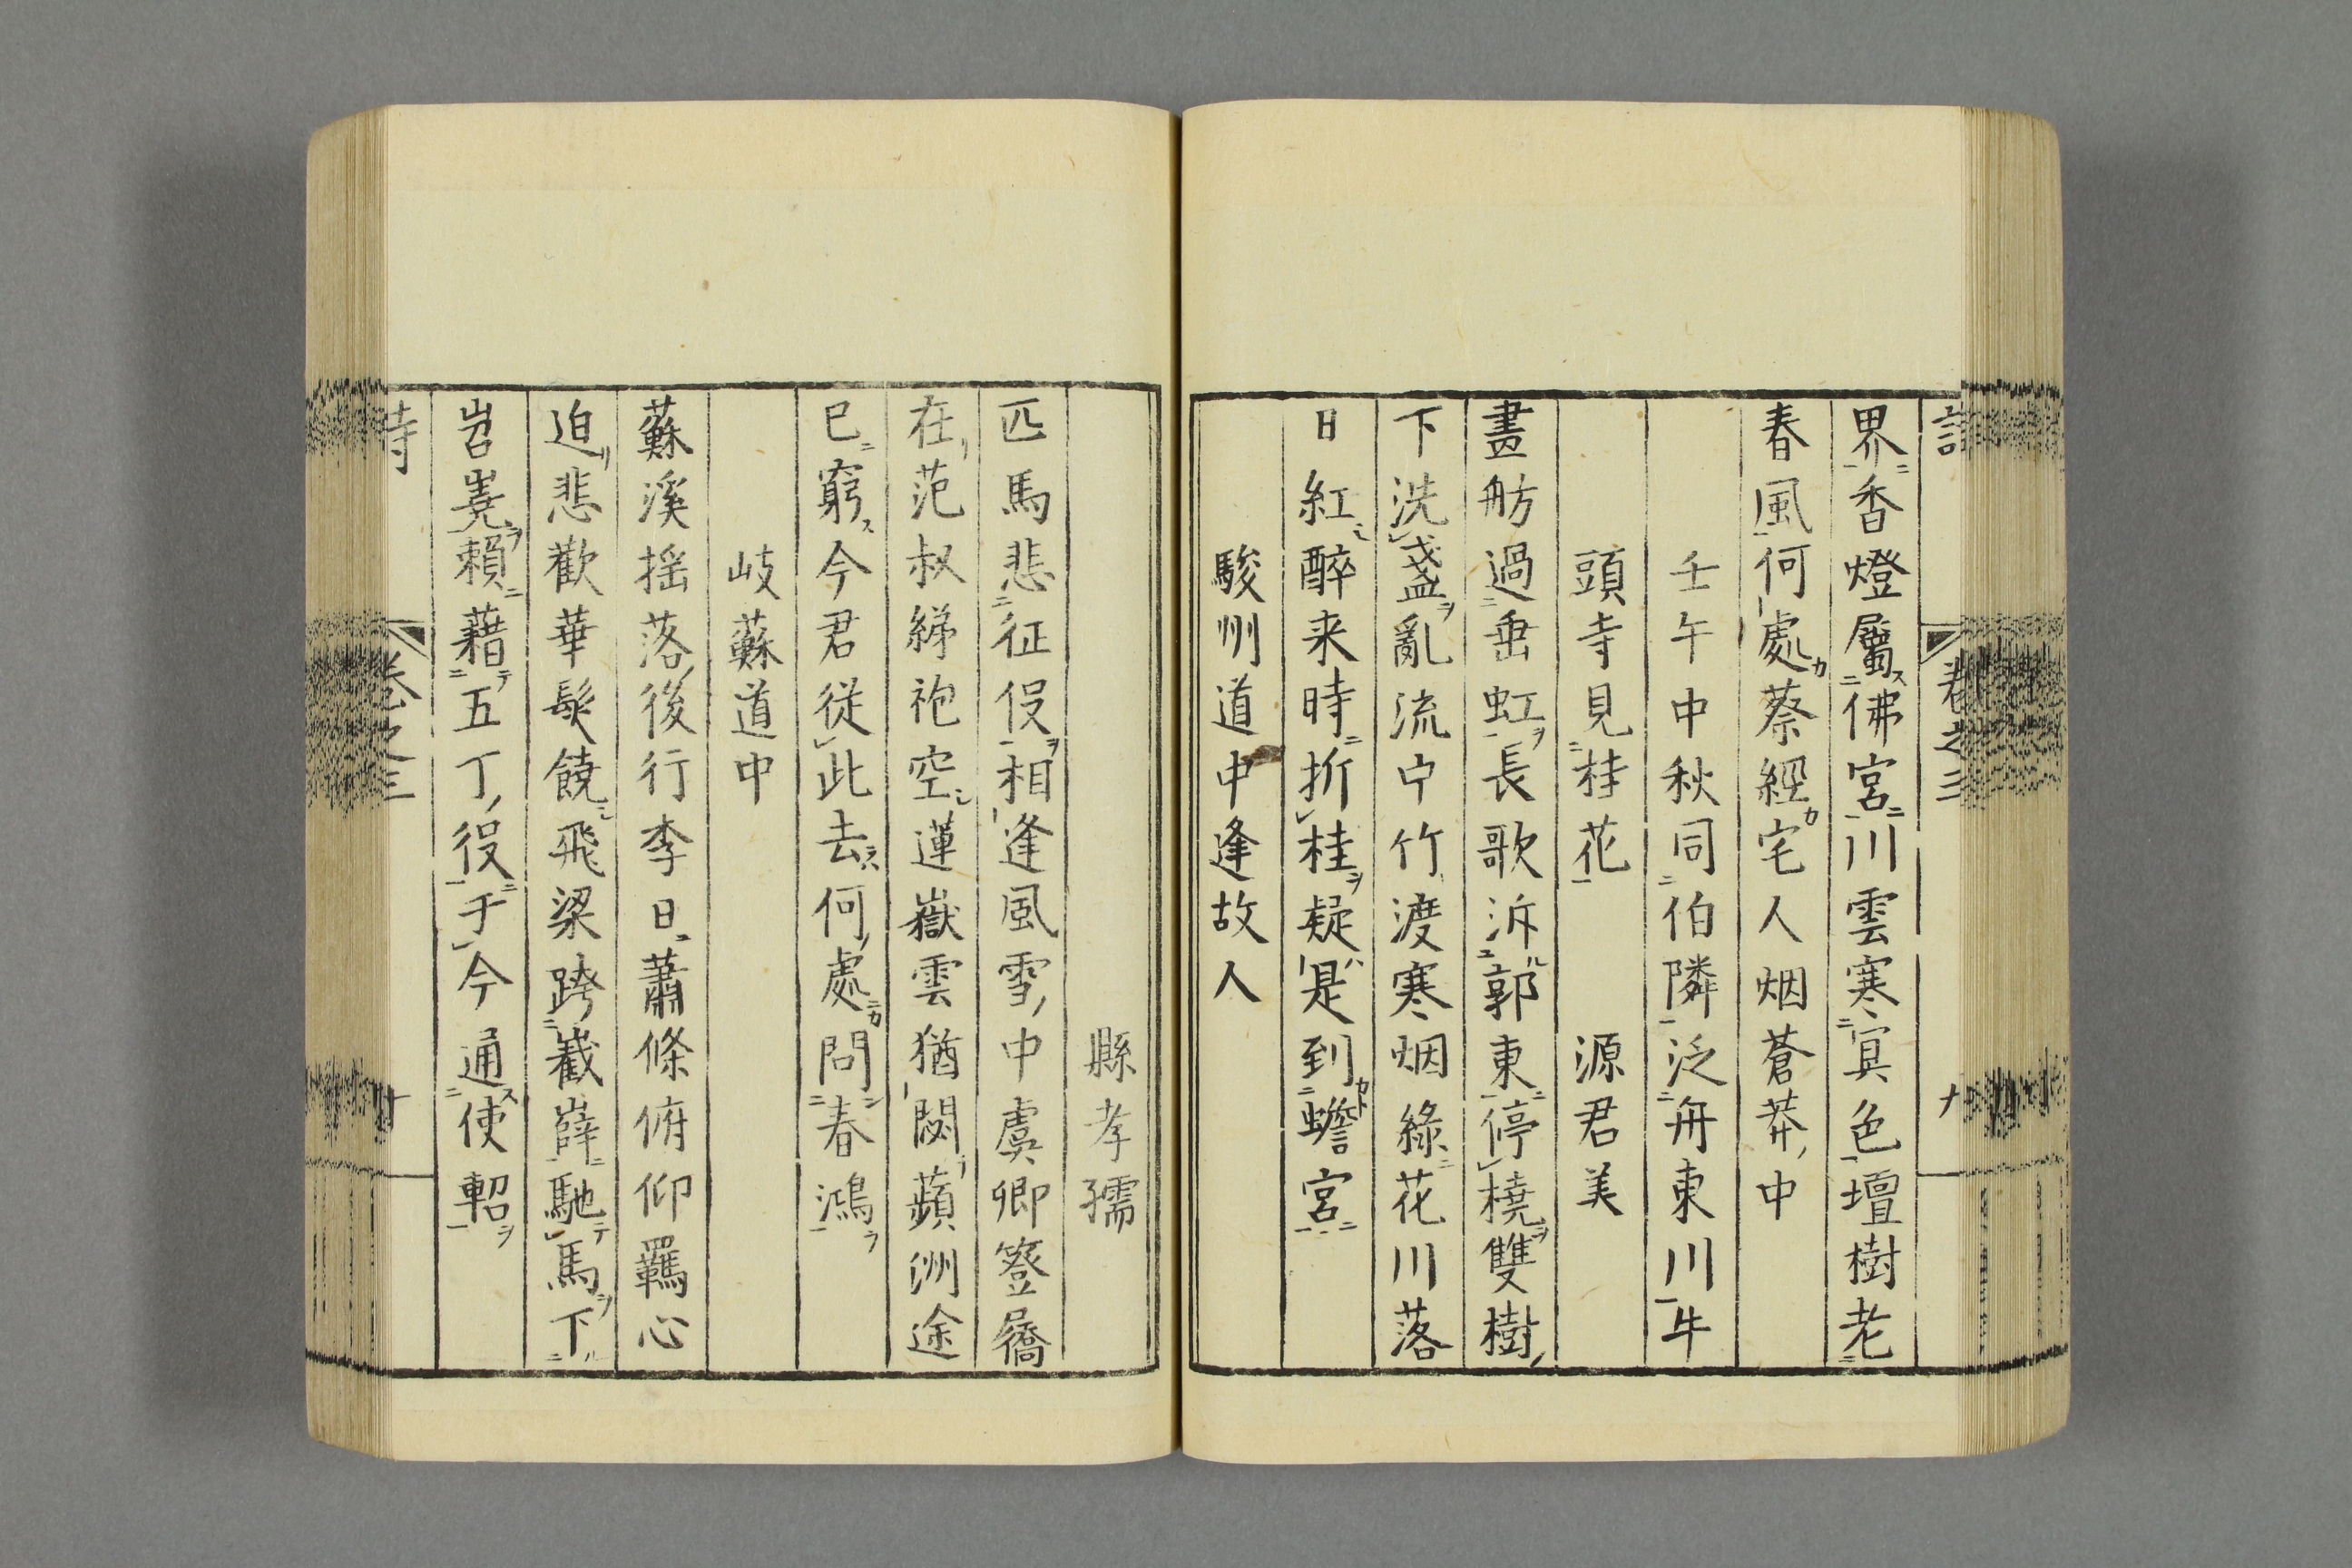 界香燈屬佛宮川雲寒寘色壇樹老
春風何處蔡經宅人烟蒼莽中
壬午中秋同伯隣泛舟東川牛
頭寺見桂花　源君美
畫舫過垂虹長歌泝郭東停橈雙樹
下洗盞亂流中竹渡寒烟綠花川落
日紅醉来時折桂疑是到蟾宮
駿州道中逢故人
縣孝孺
匹馬悲征役相逢風雪中虞卿簦屩
在范叔綈袍空蓮嶽雲猶閟蘋洲途
已窮今君從此去何處問春鴻
岐蘇道中
蘇溪揺落後行李日蕭條俯仰羈心
迫悲歡華髮饒飛梁跨嶻嶭馳馬下
岧嶤賴藉五丁役于今通使軺
卷之三